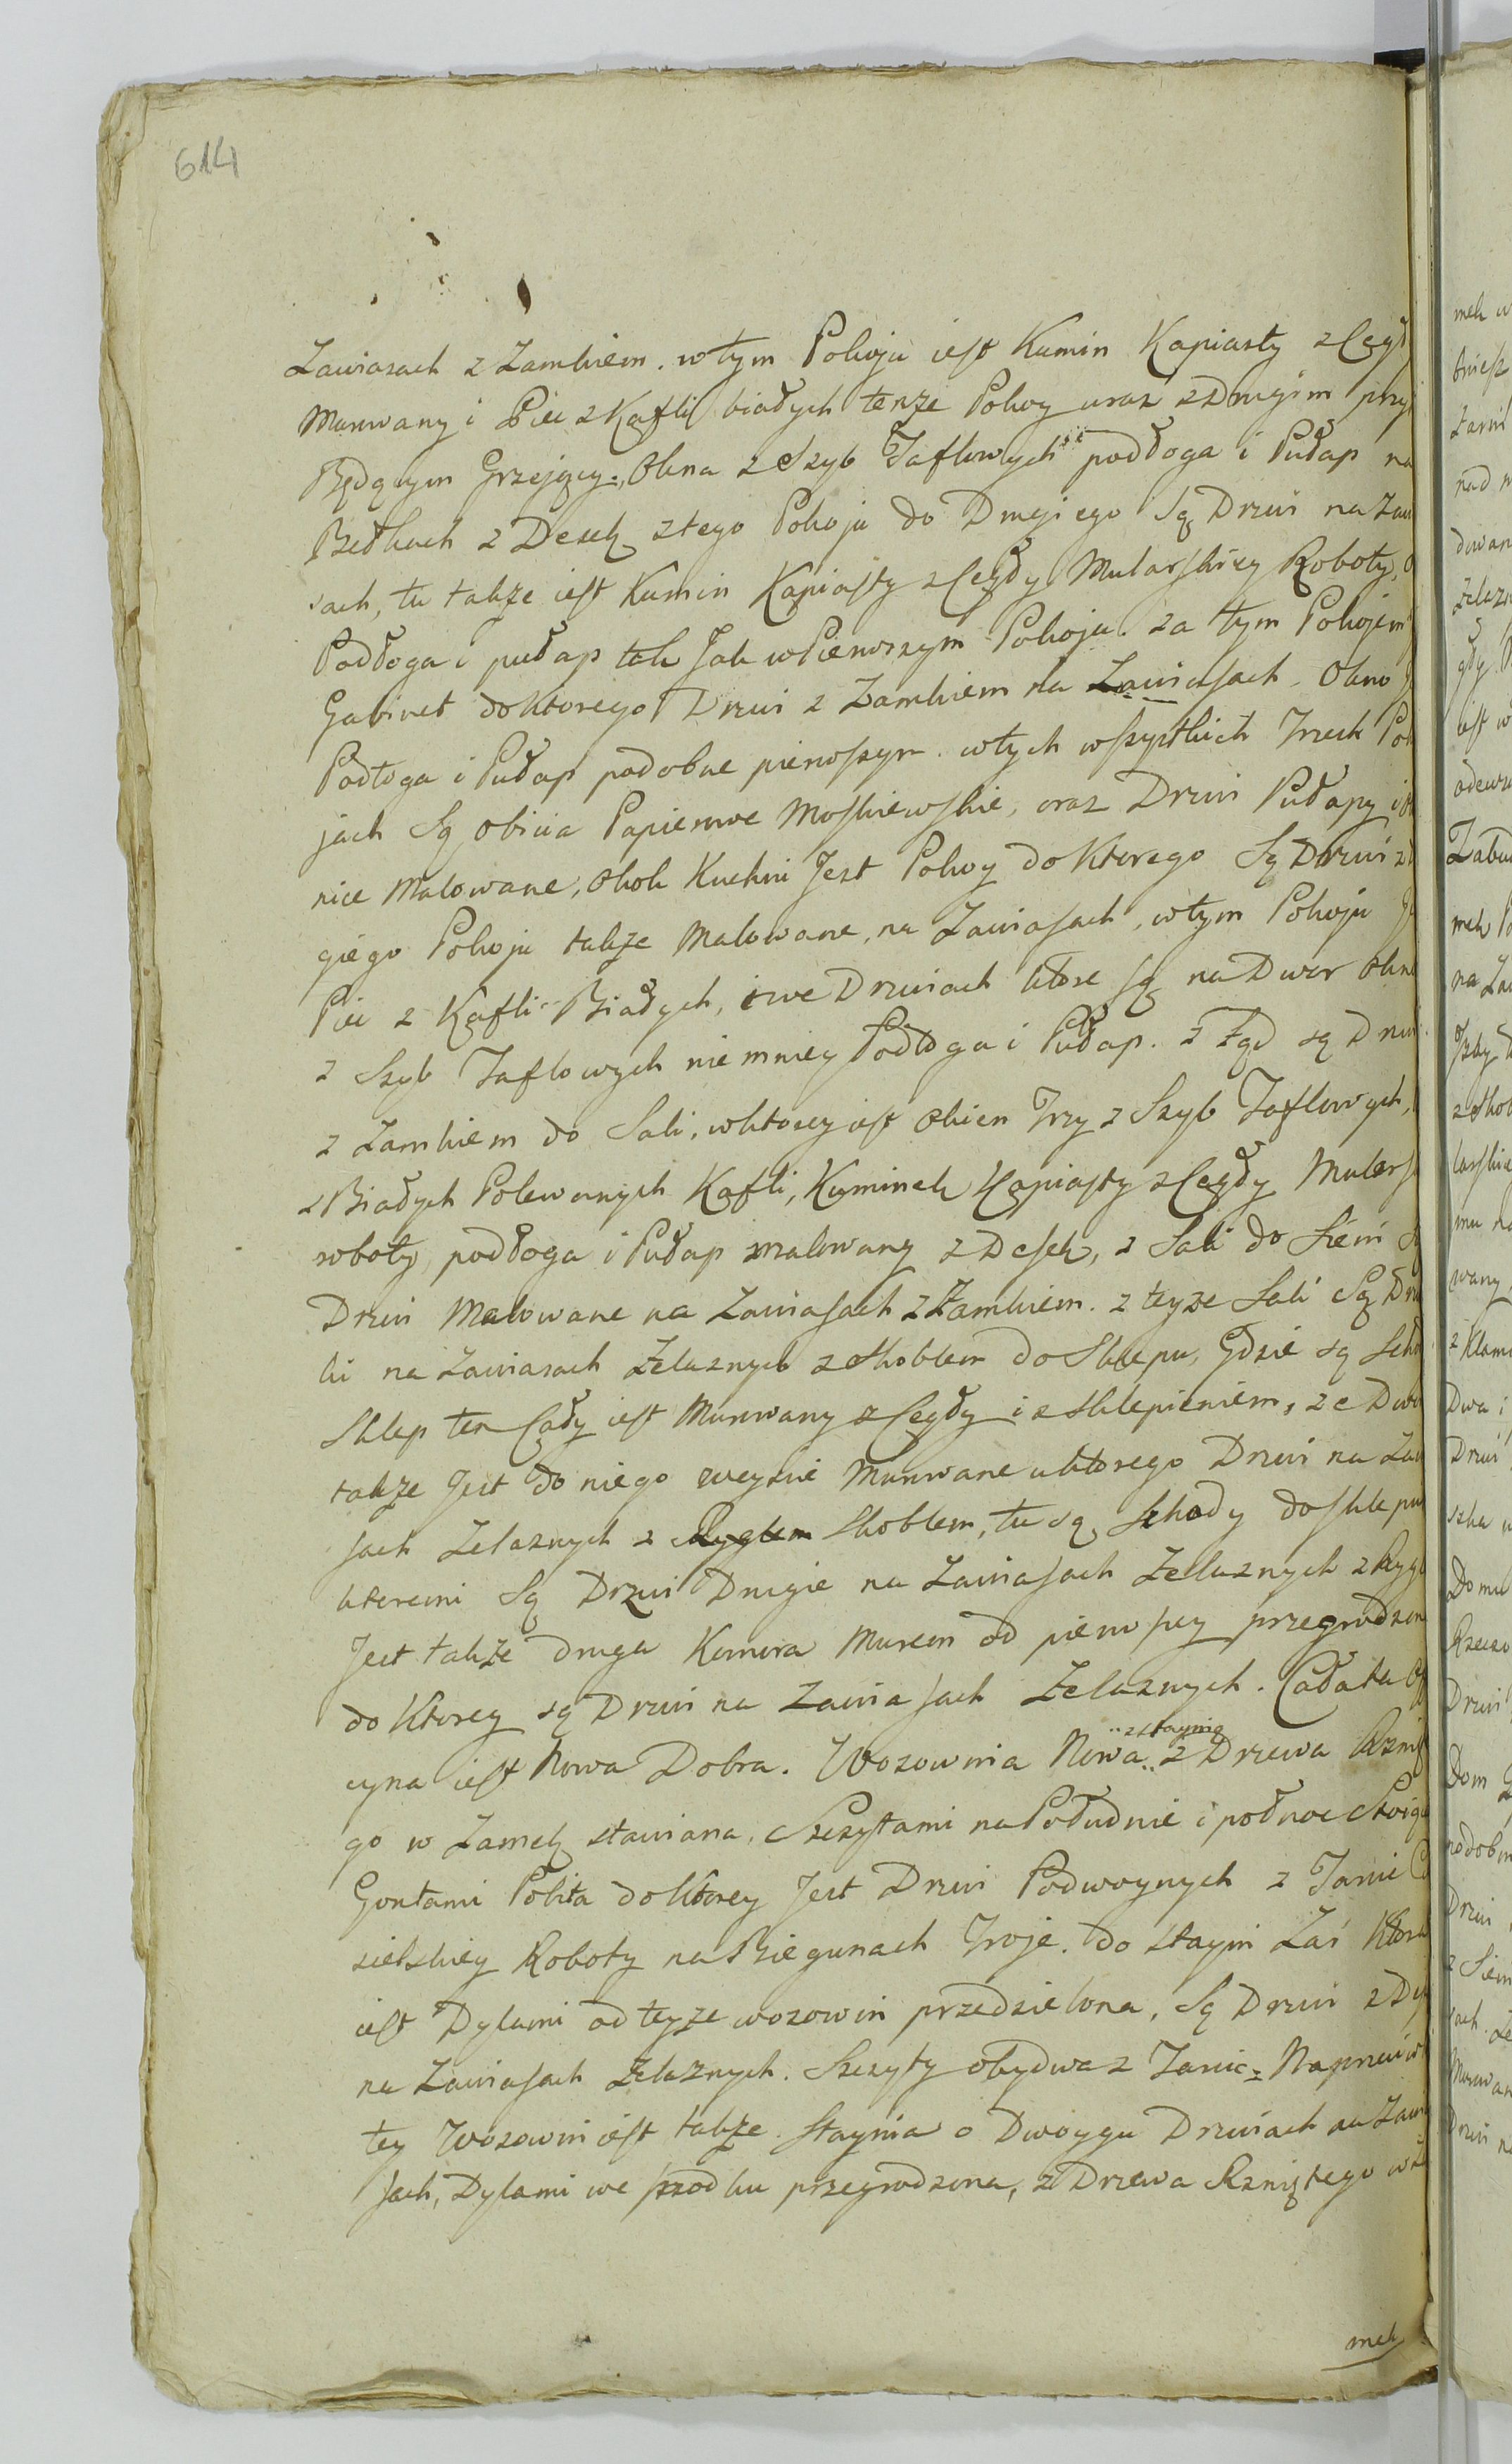 614
Zawiasach z Zamkiem. w tym Pokoju iest Kumin Kapiasty z Cegł
Murwany i Piec z Kafli białych tenże Pokoy wraz z Drugim przy
Będącym Grzejący. Okna z Szyb Taflowych podłoga i Pułap na
Belkach z Desek z tego Pokoju do Drugiego Są Drzwi na Zaw
sach, tu także iest Kumin Kapiasty z Cegły Mularskiey Roboty,
Podłoga i pułap tak Jak w Pierwszym Pokoju. za tym Pokojem
Gabinet do Ktorego Drzwi z Zamkiem na Zawiasach. Okno
Podłoga i Pułap podobne pierwszym. w tych wszystkich Trzech Pok
jach Są obicia Papierowe Moskiewskie, oraz Drzwi Pułapy i ok
nice Malowane, okok Kuchni Jest Pokoy do Ktorego Są Drzwi z
giego Pokoju także Malowane, na Zawiasach, w tym Pokoju
Piec z Kafli Białych, i we Drzwiach ktore są na Dwor Okno
z Szyb Taflowych niemniey Podłoga i Pułap. z Tąd są Drzwi
z Zamkiem do Sali, w ktorey iest Okien Trzy z Szyb Taflowych,
z Białych Polewanych Kafli, Kuminek Kapiasty z Cegły Mulars
roboty, podłoga i Pułap malowany z Desek, z Sali do Sieni
Drzwi Malowane na Zawiasach z Zamkiem. z teyze Sali Są Drzw
ki na Zawiasach Zelaznych z Skoblem do Sklepu, Gdzie są Scho
Sklep ten Cały iest Murwany z Cegły i z Sklepieniem, ze Dwo
także Jest do niego weyscie Murwane u ktorego Drzwi na Zaw
sach Zelaznych z Ryglem Skoblem, tu są Schody do sklepu
kteremi Są Drzwi Drugie na Zawiasach Zelaznych z Rygl
Jest także druga Komora Murem od pierwszey przegrodzon
do Ktorey są Drzwi na Zawiasach Zelaznych. Cała ta Off
cyna iest Nowa Dobra. Wozownia Nowa z staynią z Drzewa Rznięt
go w Zamek stawiana, Szczytami na Południe i połnoc Stoiąc
Gontami Pobita do Ktorey Jest Drzwi Podwoynych z Tarcic
sielskiey Roboty na Biegunach Troje. do stayni Zaś Ktora
iest Dylami od teyze wozowni przedzielona, Są Drzwi z D
na Zawiasach Zelaznych. Szczyty obydwa z Tarcic Naprzeciw
tey Wozowni iest także Staynia o Dwoygu Drzwiach na Zawi
sach, Dylami we srzodku przegrodzona, z Drzewa Rzniętego w
mek